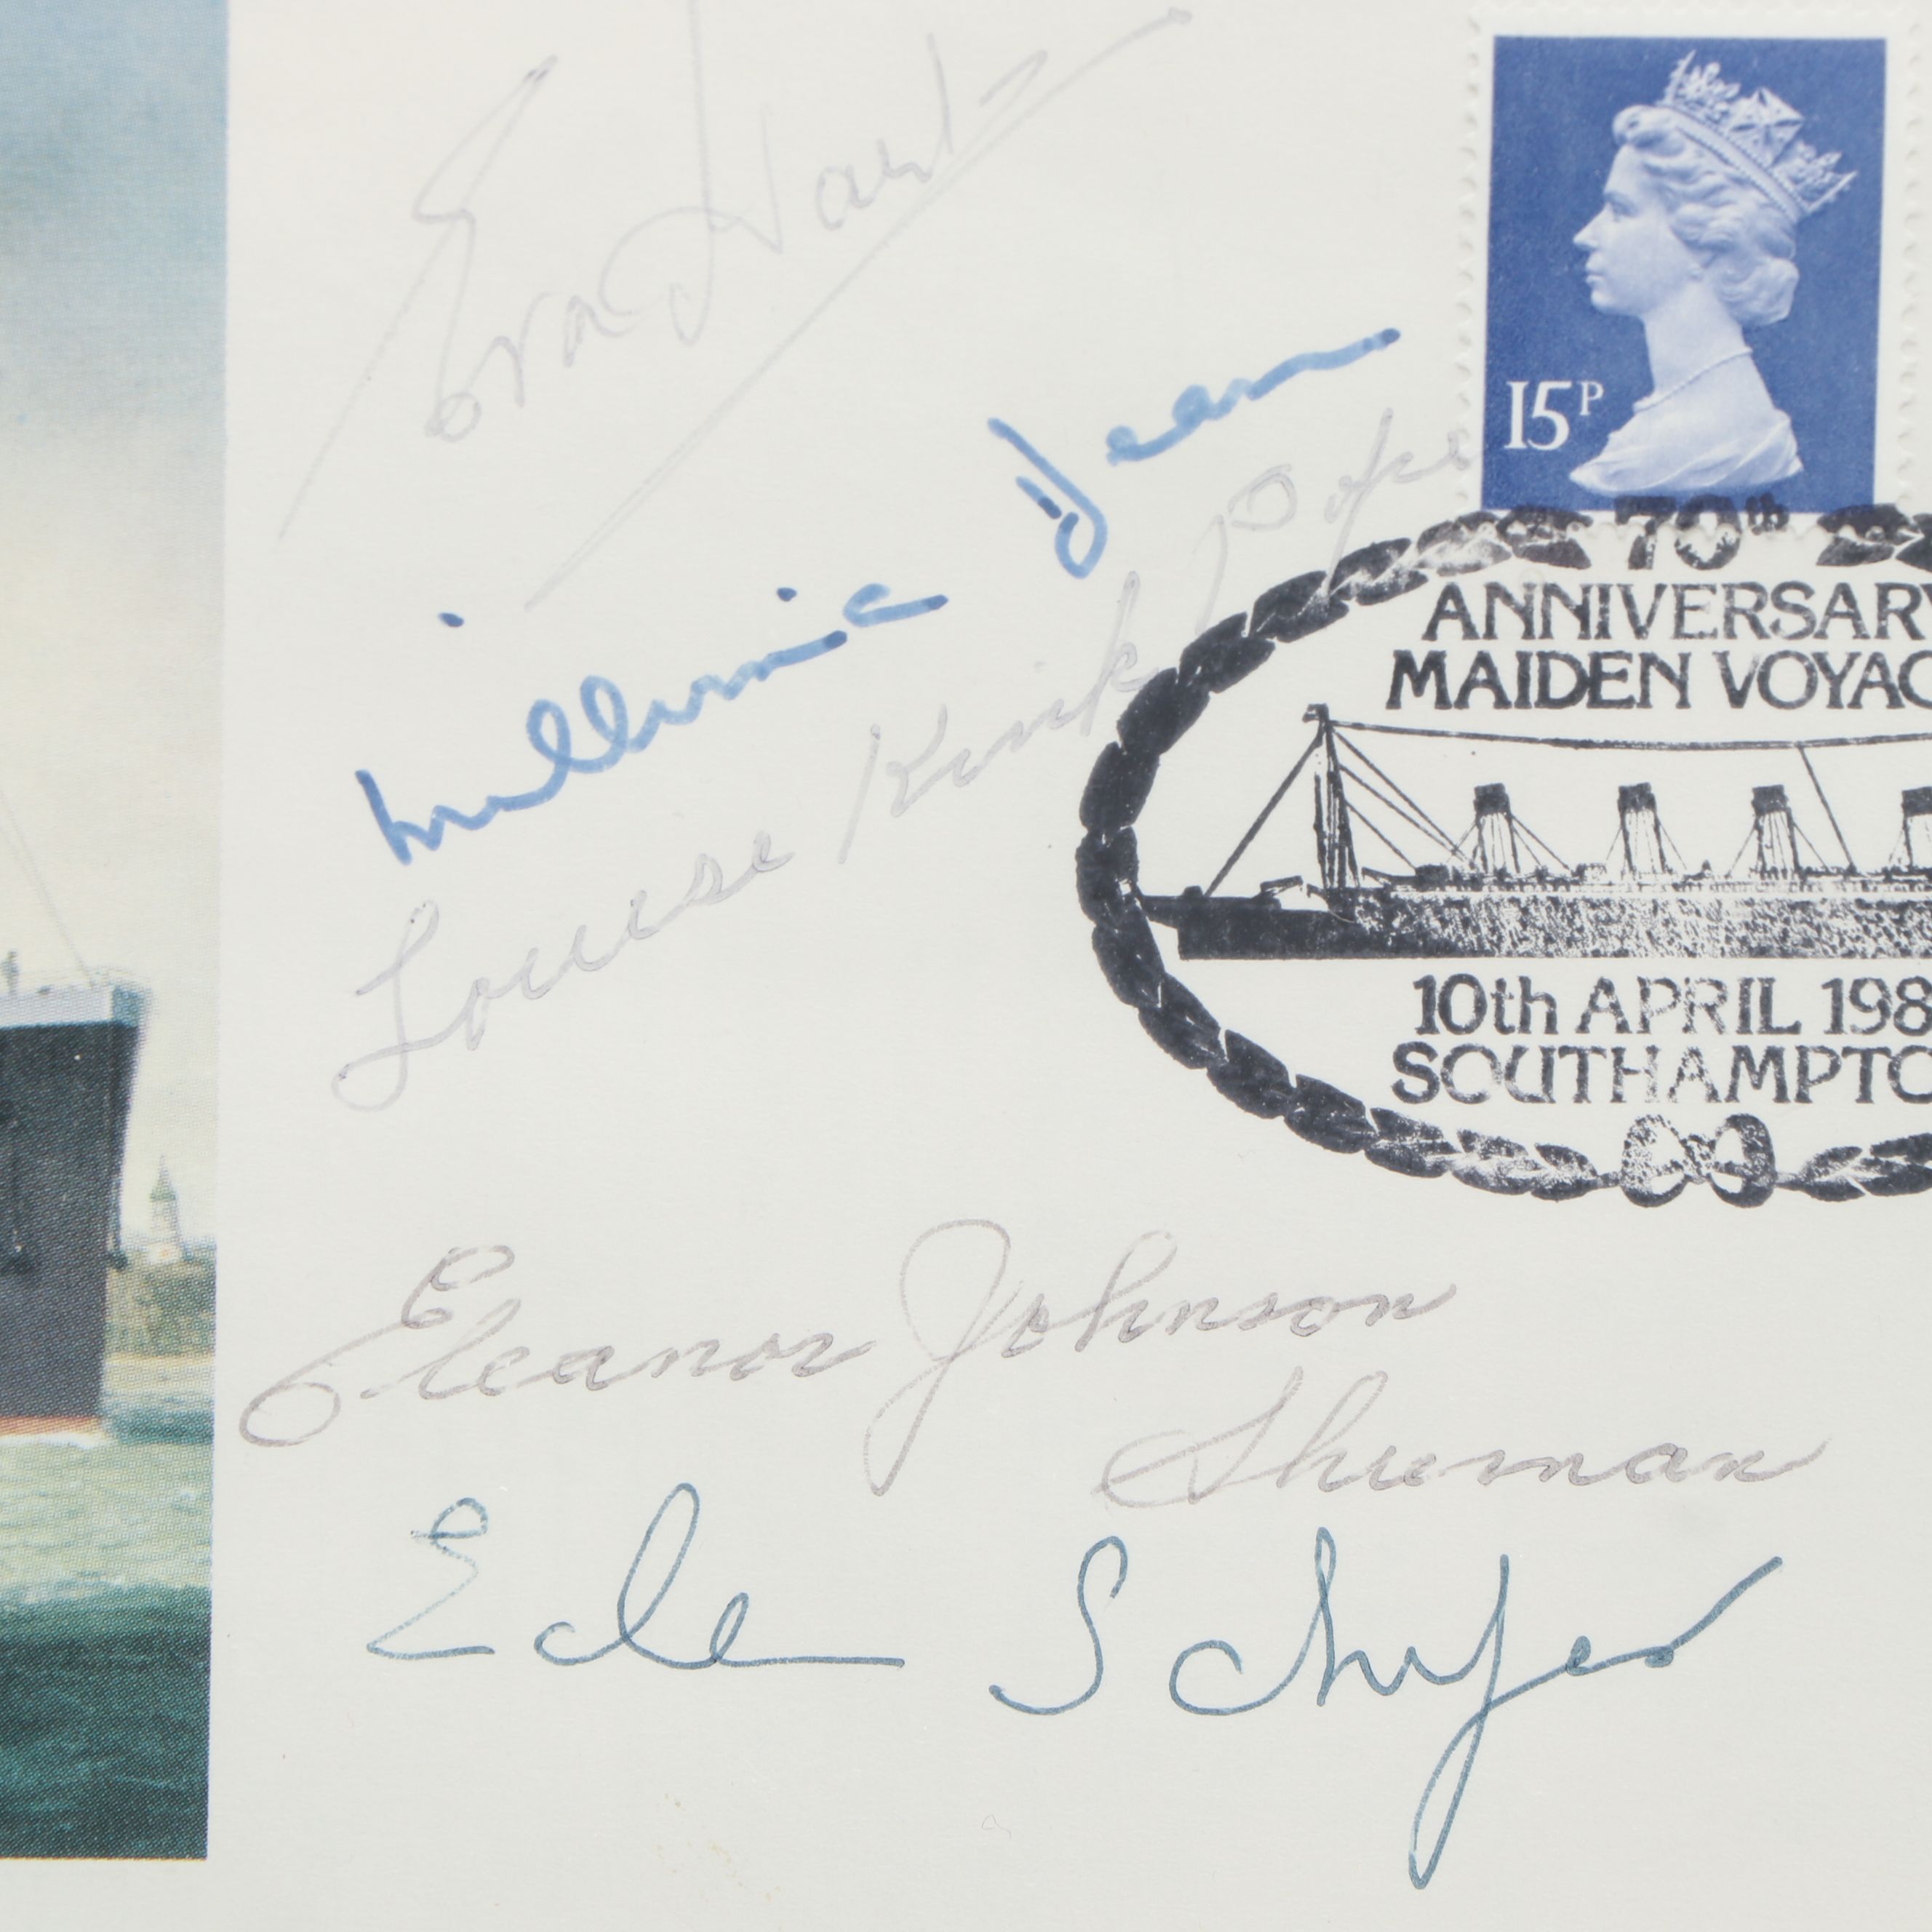 Eva Hart
15P
Millvina Dean
Louise Kink Pope
70th
ANNIVERSARY
MAIDEN VOYAG
10th APRIL 198
SOUTHAMPTO
Eleanor Johnson
Shuman